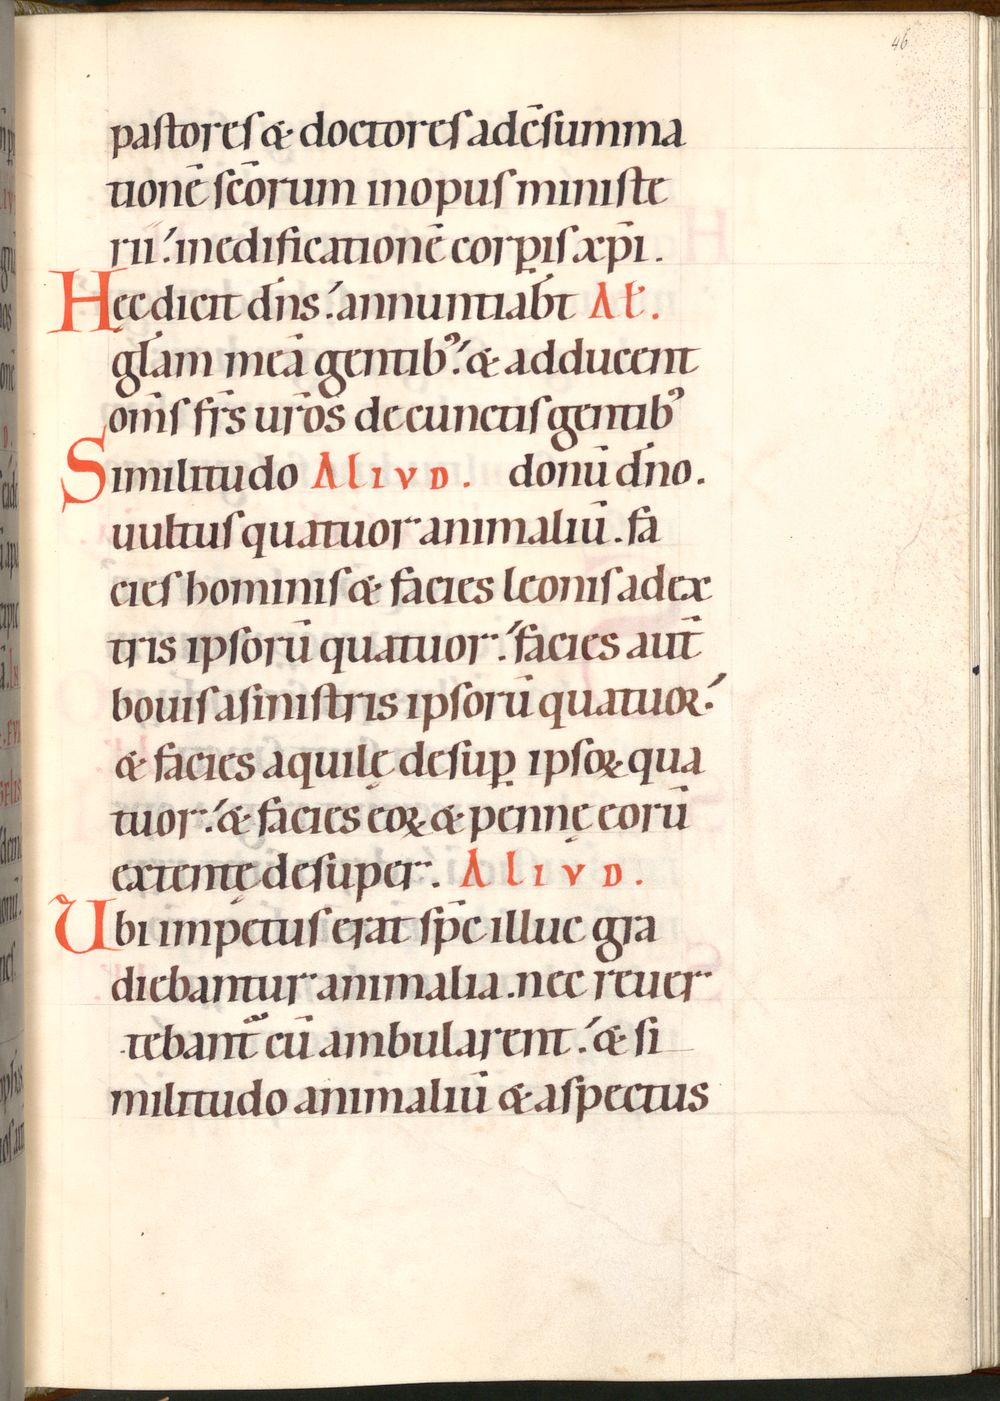 46
pastores & doctores adc̄summa
tionē sc̄orum inopus ministe
rii. inedificationē corꝑis xp̄i.
Hęc dicit dn̄s. annuntiab̄t Al̄.
gl̄am meā gentib⁹. & adducent
om̄s fr̄s ur̄os decunctis gentib⁹
Similitudo Aliud. donū dn̄o.
uultus quatuor animaliū. fa
cies hominis & facies leonis adex
tris ipsorū quatuor. facies aut̄
bouis asinistris ipsorū quatuor.
& facies aquilę desuꝑ ipsoꝝ qua
tuor. & facies eoꝝ & pennę eorū
extentę desuper. Aliud.
Ubi impetus erat sp̄c illuc gra
diebantur animalia. nec reuer
tebant̄ cū ambularent. & si
militudo animaliū & aspectus